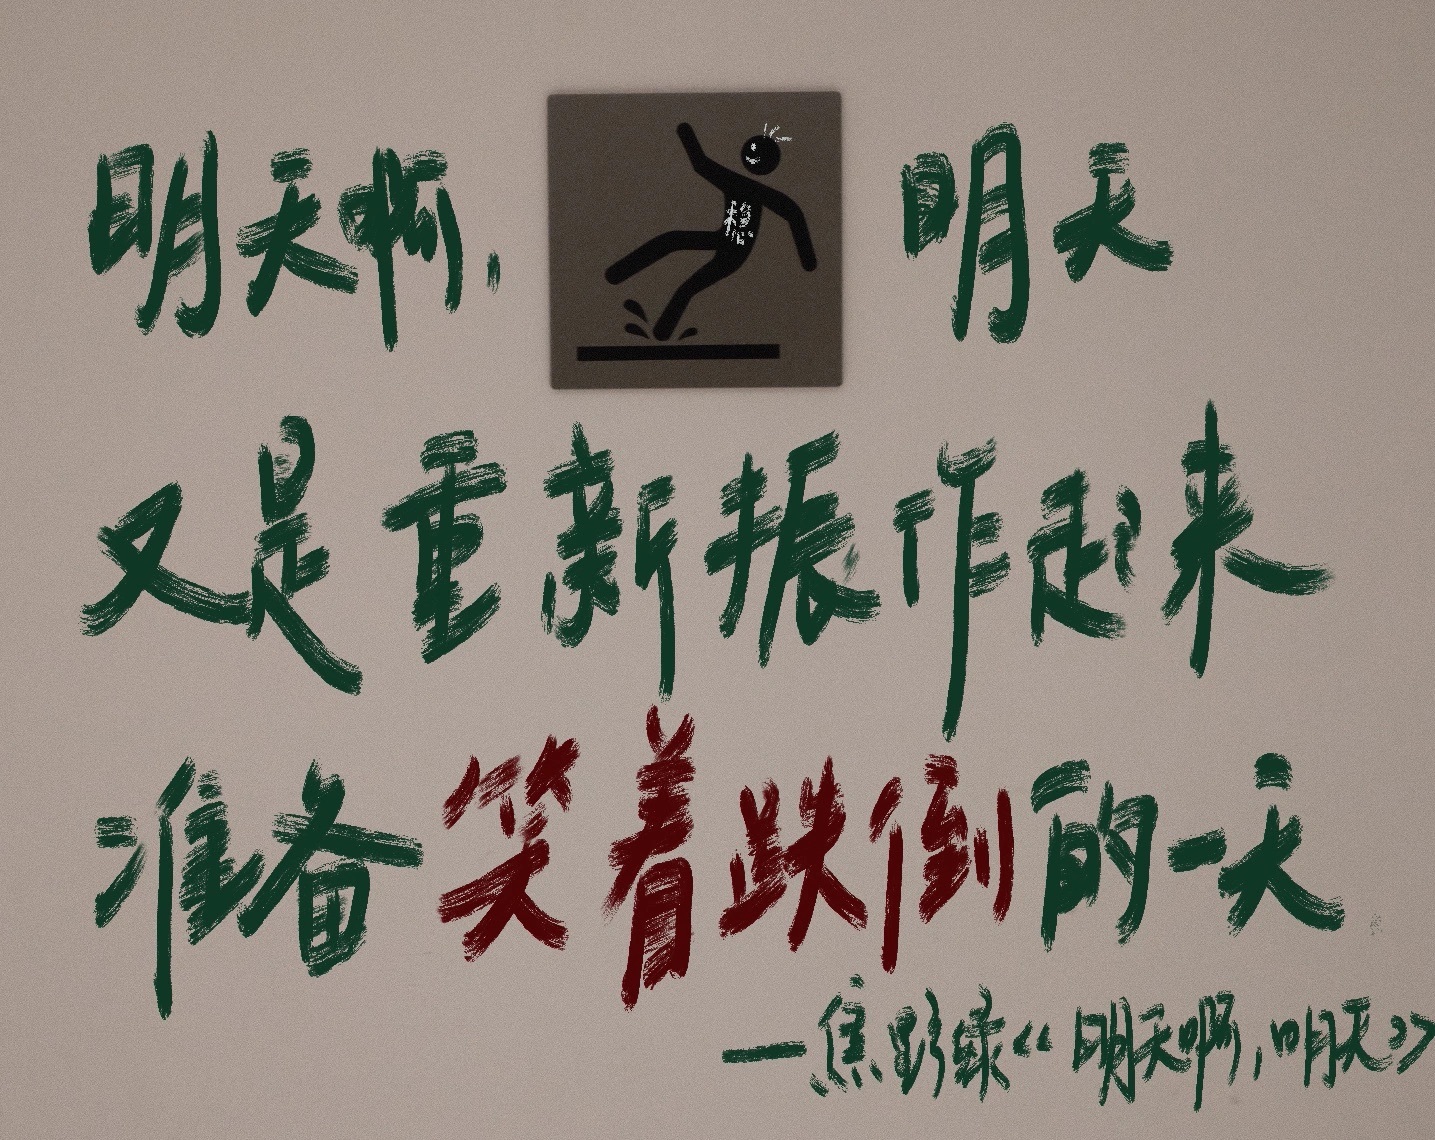 明天啊，明天
又是重新振作起来
准备笑着跌倒的一天
—焦野绿《明天啊，明天》